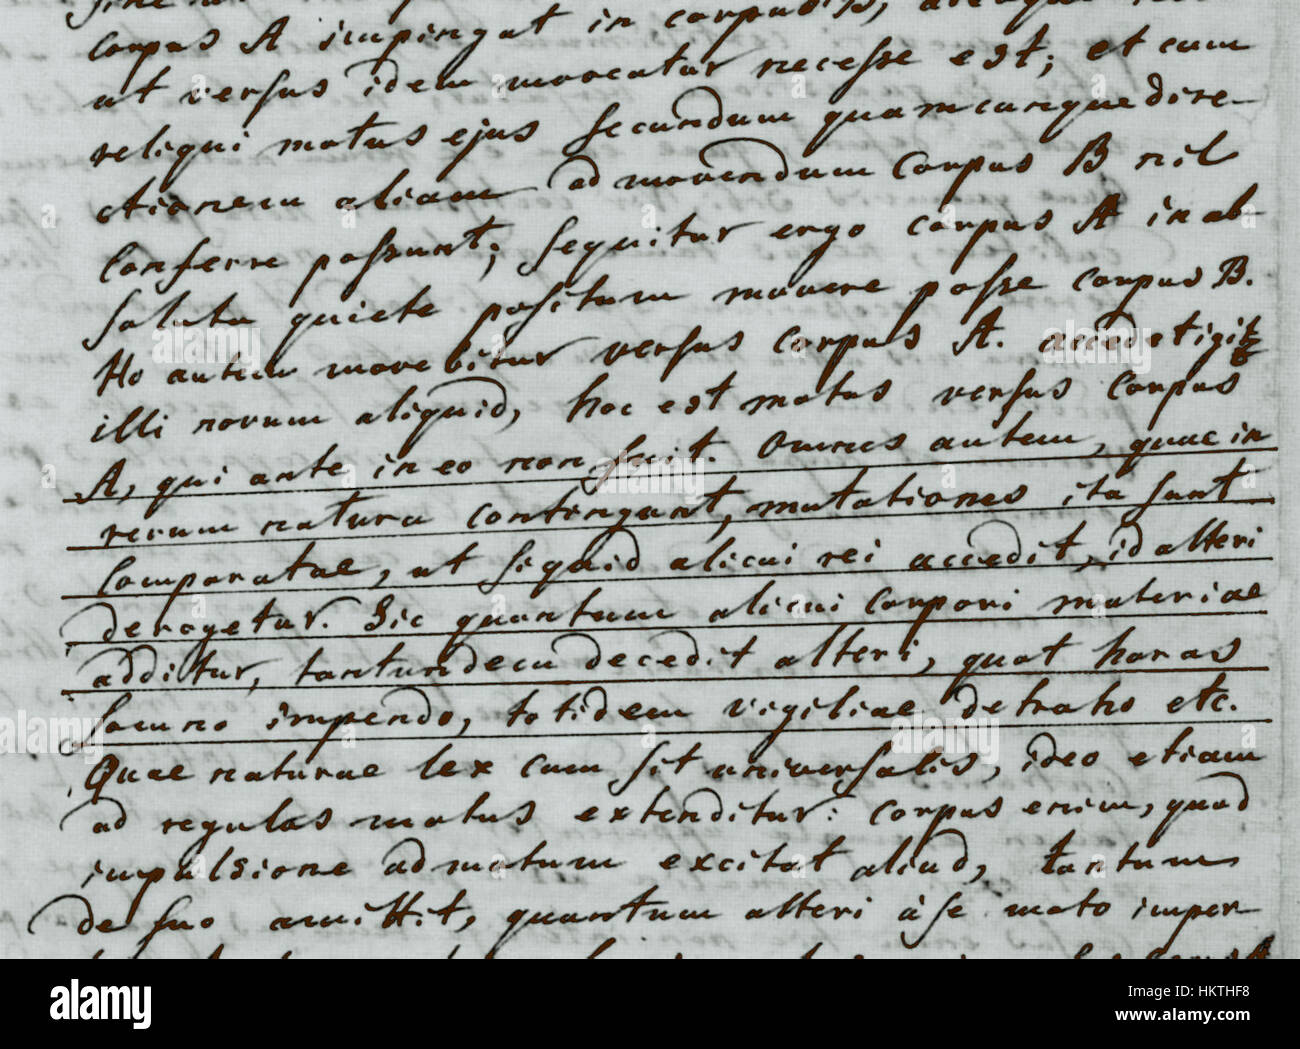 corpus A impingat in corpus B,
ut versus idem moveatur necesse est; et cum
reliqui motus ejus secundum quamcunque dire-
ctionem aliam ad movendum corpus B nil
conferre possunt; sequitur ergo corpus A in ab-
soluta quiete positum movere posse corpus B.
Ho autem movebitur versus corpus A. accedet igitur
illi novum aliquid, hoc est motus versus corpus
A, qui ante in eo non fuit. Omnes autem, quae in
rerum natura contingunt, mutationes ita sunt
comparatae, ut siquid alicui rei accedit, id alteri
derogetur. Sic quantum alicui corpori materiae
additur, tantundem decedit alteri, quot horas
somno impendo, totidem vigiliae detraho etc.
Quae naturae lex cum sit universalis, ideo etiam
ad regulas motus extenditur: corpus enim, quod
impulsione ad motum excitat aliud, tantum
de suo amittit, quantum alteri à se moto imper
alamy stock photo
a
alamy
HKTHF8
www.alamy.com